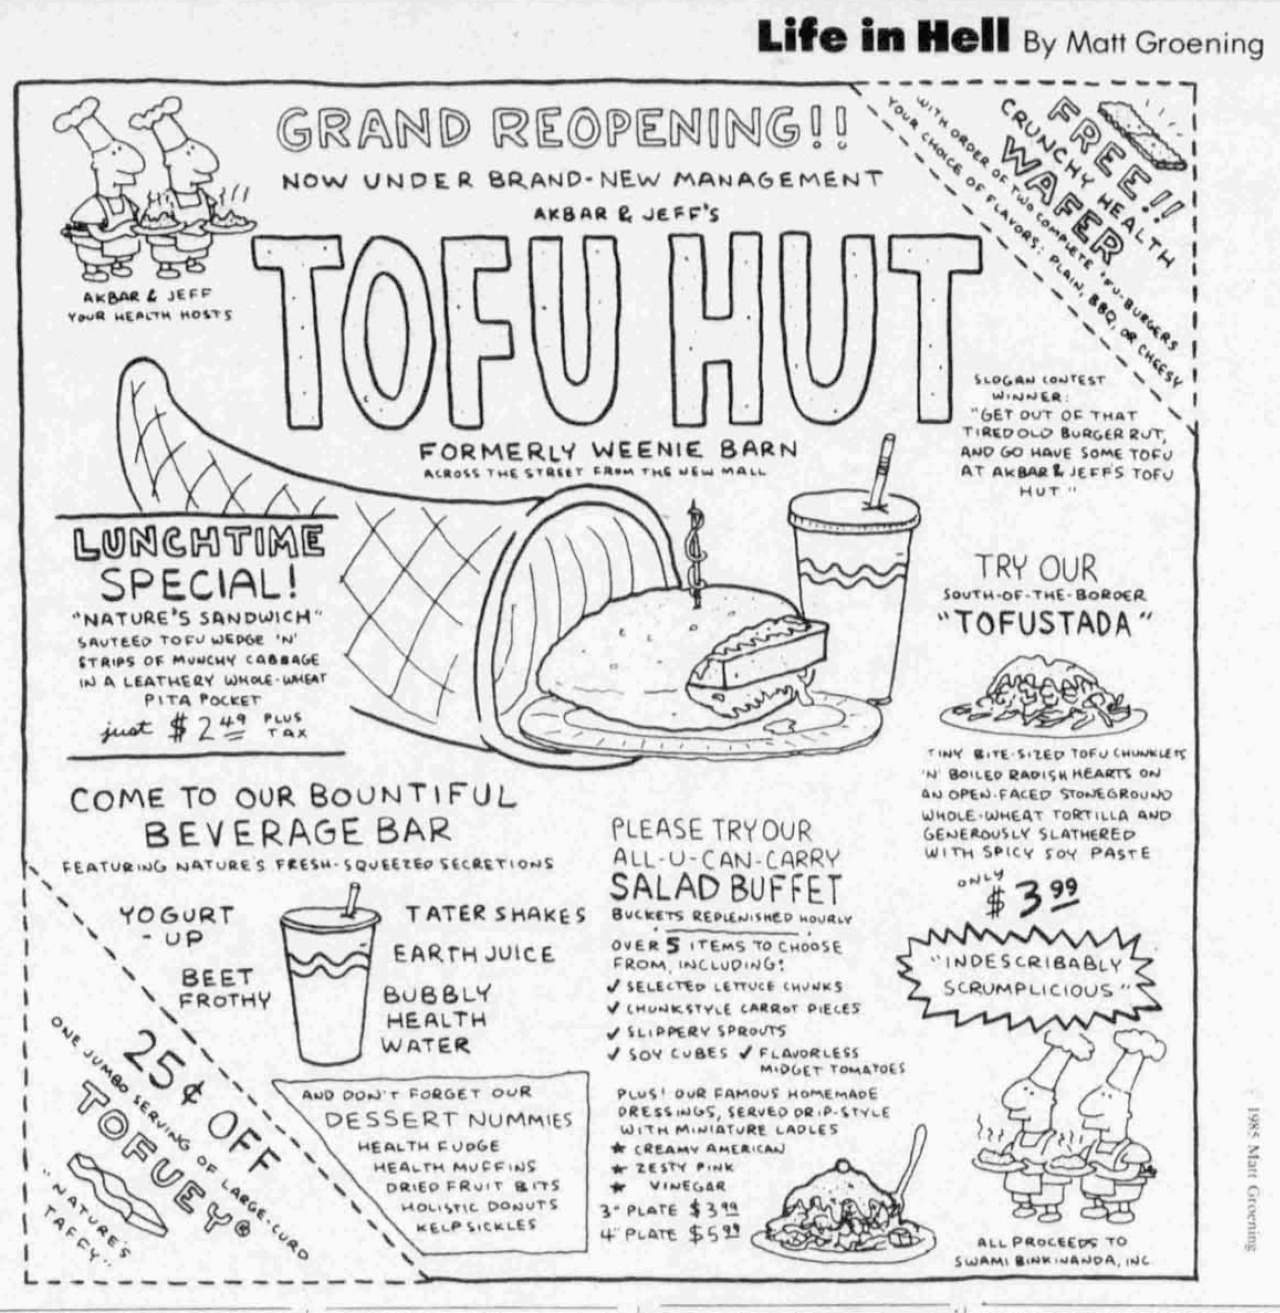 Life in Hell By Matt Groening
GRAND REOPENING!!
NOW UNDER BRAND-NEW MANAGEMENT
AKBAR & JEFF'S
TOFU HUT
FORMERLY WEENIE BARN
ACROSS THE STREET FROM THE NEW MALL
AKBAR & JEFF
YOUR HEALTH HOSTS
FREE!!
CRUNCHY HEALTH
WAFER
WITH ORDER OF TWO COMPLETE 'FU-BURGERS
YOUR CHOICE OF FLAVORS: PLAIN, BBQ, OR CHEESY
SLOGAN CONTEST
WINNER:
"GET OUT OF THAT
TIRED OLD BURGER RUT,
AND GO HAVE SOME TOFU
AT AKBAR & JEFF'S TOFU
HUT"
LUNCHTIME
SPECIAL!
"NATURE'S SANDWICH"
SAUTEED TOFU WEDGE 'N'
STRIPS OF MUNCHY CABBAGE
IN A LEATHERY WHOLE-WHEAT
PITA POCKET
just $2.49 PLUS TAX
TRY OUR
SOUTH-OF-THE-BORDER
"TOFUSTADA"
TINY BITE-SIZED TOFU CHUNKLETS
'N' BOILED RADISH HEARTS ON
AN OPEN-FACED STONEGROUND
WHOLE-WHEAT TORTILLA AND
GENEROUSLY SLATHERED
WITH SPICY SOY PASTE
ONLY
$3.99
"INDESCRIBABLY
SCRUMPLICIOUS"
COME TO OUR BOUNTIFUL
BEVERAGE BAR
FEATURING NATURE'S FRESH-SQUEEZED SECRETIONS
YOGURT
-UP
BEET
FROTHY
TATER SHAKES
EARTH JUICE
BUBBLY
HEALTH
WATER
PLEASE TRY OUR
ALL-U-CAN-CARRY
SALAD BUFFET
BUCKETS REPLENISHED HOURLY
OVER 5 ITEMS TO CHOOSE
FROM, INCLUDING:
✓ SELECTED LETTUCE CHUNKS
✓ CHUNKSTYLE CARROT PIECES
✓ SLIPPERY SPROUTS
✓ SOY CUBES ✓ FLAVORLESS
MIDGET TOMATOES
PLUS! OUR FAMOUS HOMEMADE
DRESSINGS, SERVED DRIP-STYLE
WITH MINIATURE LADLES
★ CREAMY AMERICAN
★ ZESTY PINK
★ VINEGAR
3" PLATE $3.99
4" PLATE $5.99
25¢ OFF
ONE JUMBO SERVING OF LARGE-CURD
TOFUEY®
"NATURE'S
TAFFY"
AND DON'T FORGET OUR
DESSERT NUMMIES
HEALTH FUDGE
HEALTH MUFFINS
DRIED FRUIT BITS
HOLISTIC DONUTS
KELPSICKLES
ALL PROCEEDS TO
SWAMI BINKINANDA, INC.
© 1985 Matt Groening